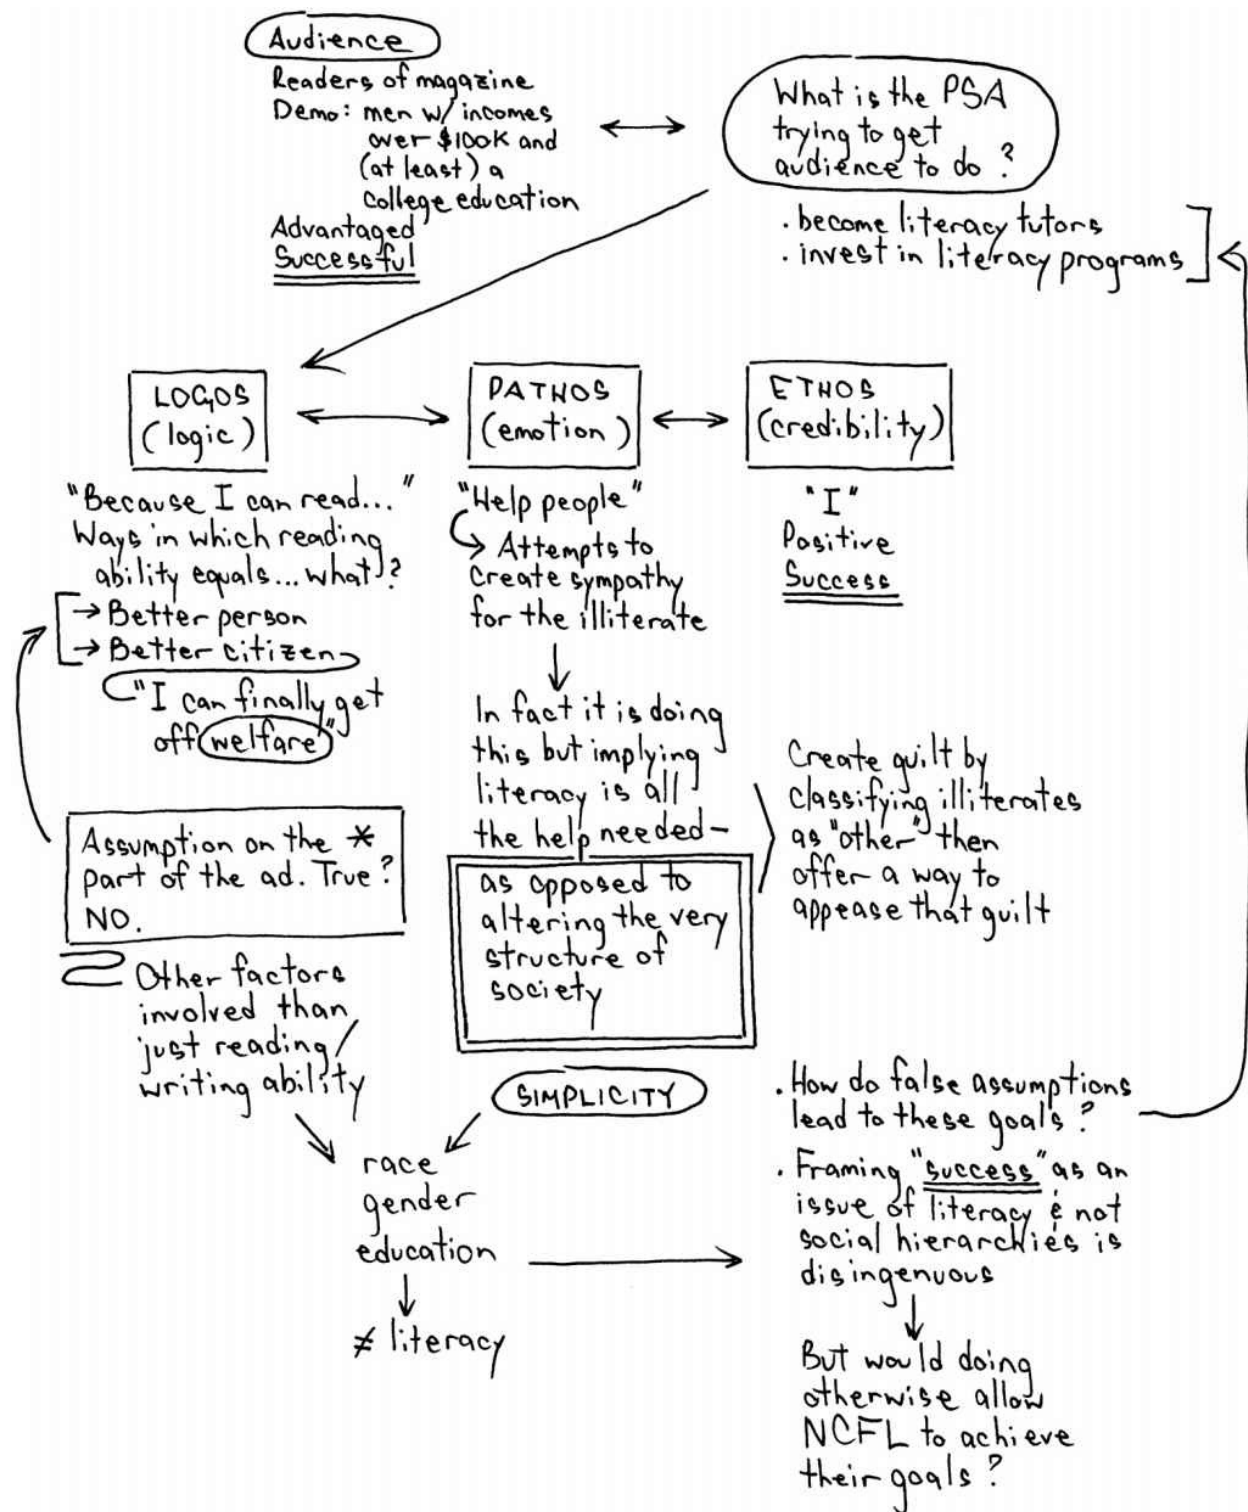 Audience
Readers of magazine
Demo: men w/ incomes
over $100K and
(at least) a
college education
Advantaged
Successful
What is the PSA
trying to get
audience to do?
. become literacy tutors
. invest in literacy programs
LOGOS
(logic)
"Because I can read..."
Ways in which reading
ability equals...what?
→ Better person
→ Better citizen
"I can finally get
off welfare"
Assumption on the *
part of the ad. True?
NO.
Other factors
involved than
just reading/
writing ability
PATHOS
(emotion)
"Help people"
Attempts to
create sympathy
for the illiterate
In fact it is doing
this but implying
literacy is all
the help needed-
as opposed to
altering the very
structure of
society
SIMPLICITY
ETHOS
(credibility)
"I"
Positive
Success
Create guilt by
classifying illiterates
as "other" then
offer a way to
appease that guilt
race
gender
education
≠ literacy
. How do false assumptions
lead to these goals?
. Framing "success" as an
issue of literacy & not
social hierarchies is
disingenuous
But would doing
otherwise allow
NCFL to achieve
their goals?